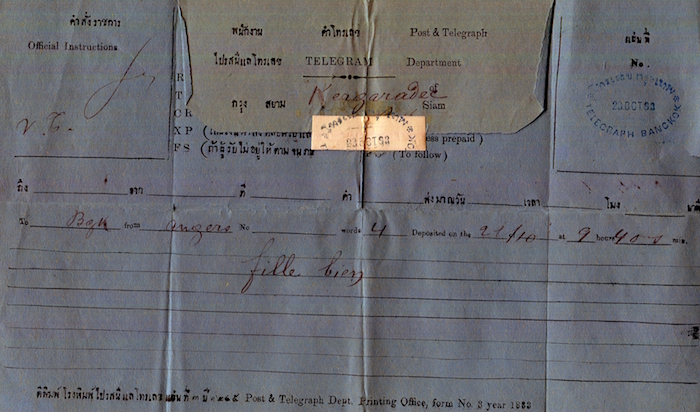 คำสั่งราชการ
Official Instructions
พนักงาน คำโทรเลข Post & Telegraph
ไปรสนีแลโทรเลข TELEGRAM Department
Kergaradec
กรุง สยาม Siam
23 OCT 93
TELEGRAPH BANGKOK
23 OCT 93
แผ่นที่
No.
R
T
CR
XP ess prepaid)
FS (ถ้าผู้รับไม่อยู่ให้ตาม (To follow)
ถึง จาก ที่ คำ ส่งมาณวัน เวลา โมง
To Bgk from Angers No words 4 Deposited on the 21/10 at 9 hours 40 s min.
fille bien
ตีพิมพ์ โรงพิมพ์ไปรสนีแลโทรเลข แผ่นที่ ๓ ปี ๑๒๔๕ Post & Telegraph Dept. Printing Office, form No. 3 year 1883